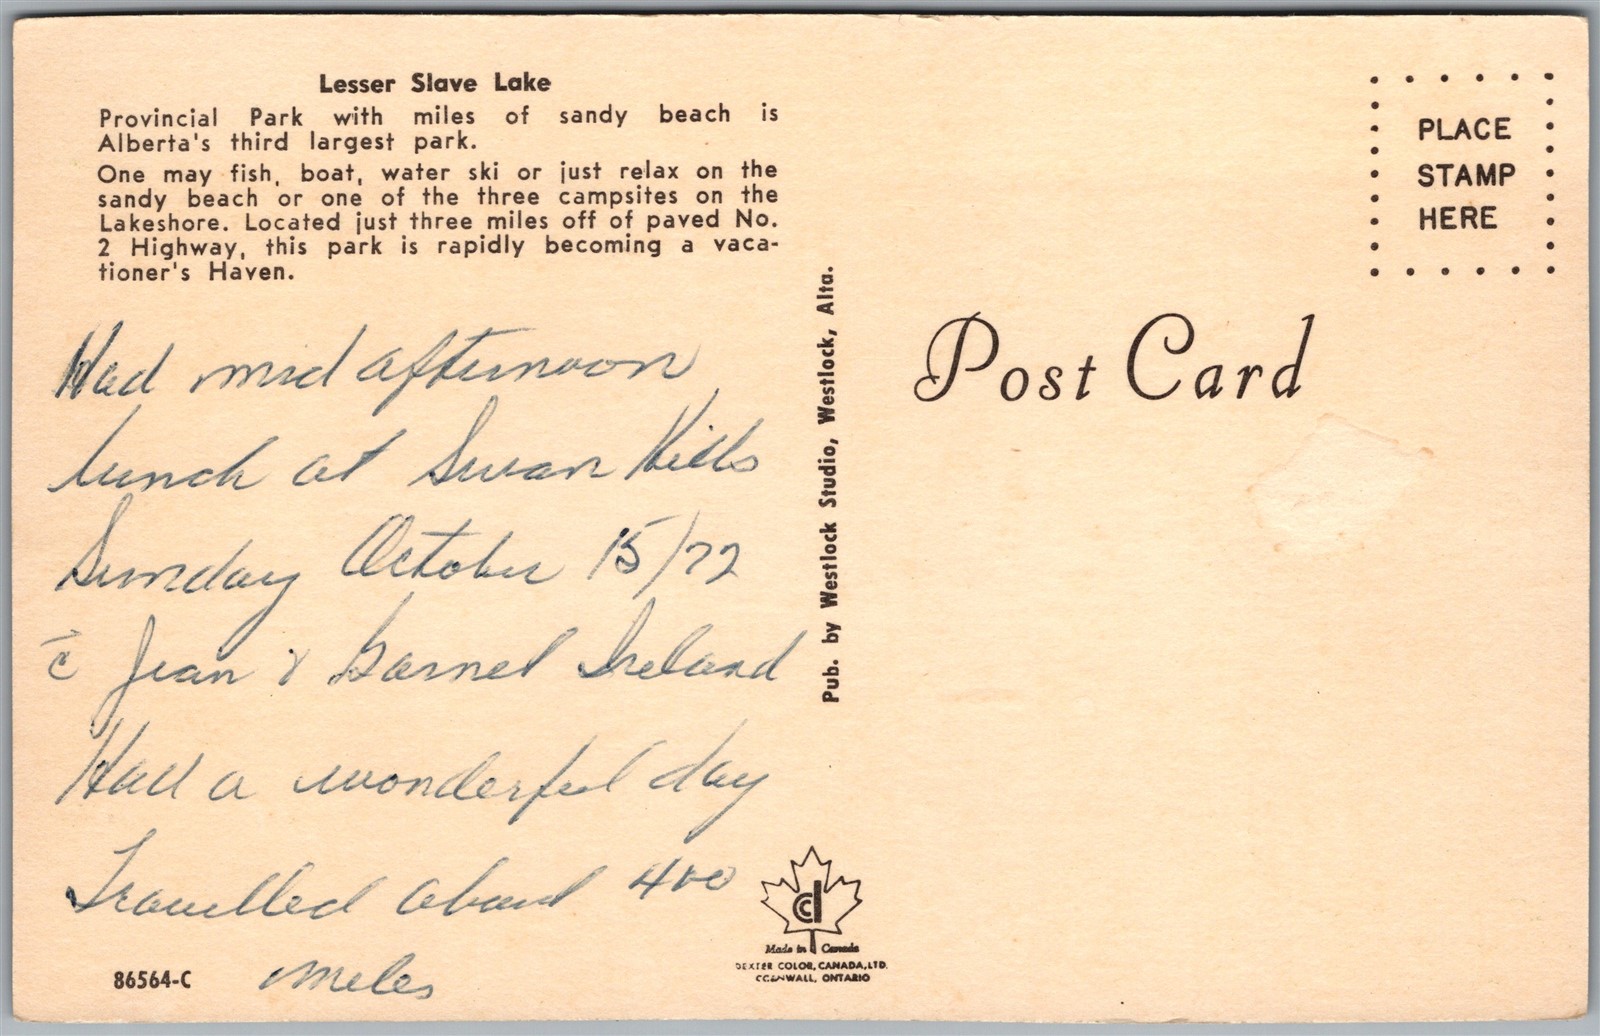 Lesser Slave Lake
Provincial Park with miles of sandy beach is
Alberta's third largest park.
One may fish, boat, water ski or just relax on the
sandy beach or one of the three campsites on the
Lakeshore. Located just three miles off of paved No.
2 Highway, this park is rapidly becoming a vaca-
tioner's Haven.
Had mid afternoon
lunch at Swan Hills
Sunday October 15/72
c̄ Jean & Garnet Ireland
Had a wonderful day
Travelled about 400
miles
86564-C
Pub. by Westlock Studio, Westlock, Alta.
dc
Made in Canada
DEXTER COLOR, CANADA, LTD.
CORNWALL, ONTARIO
PLACE
STAMP
HERE
Post Card